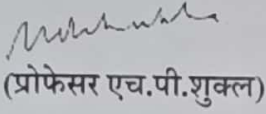 (प्रोफेसर एच.पी.शुक्ल)